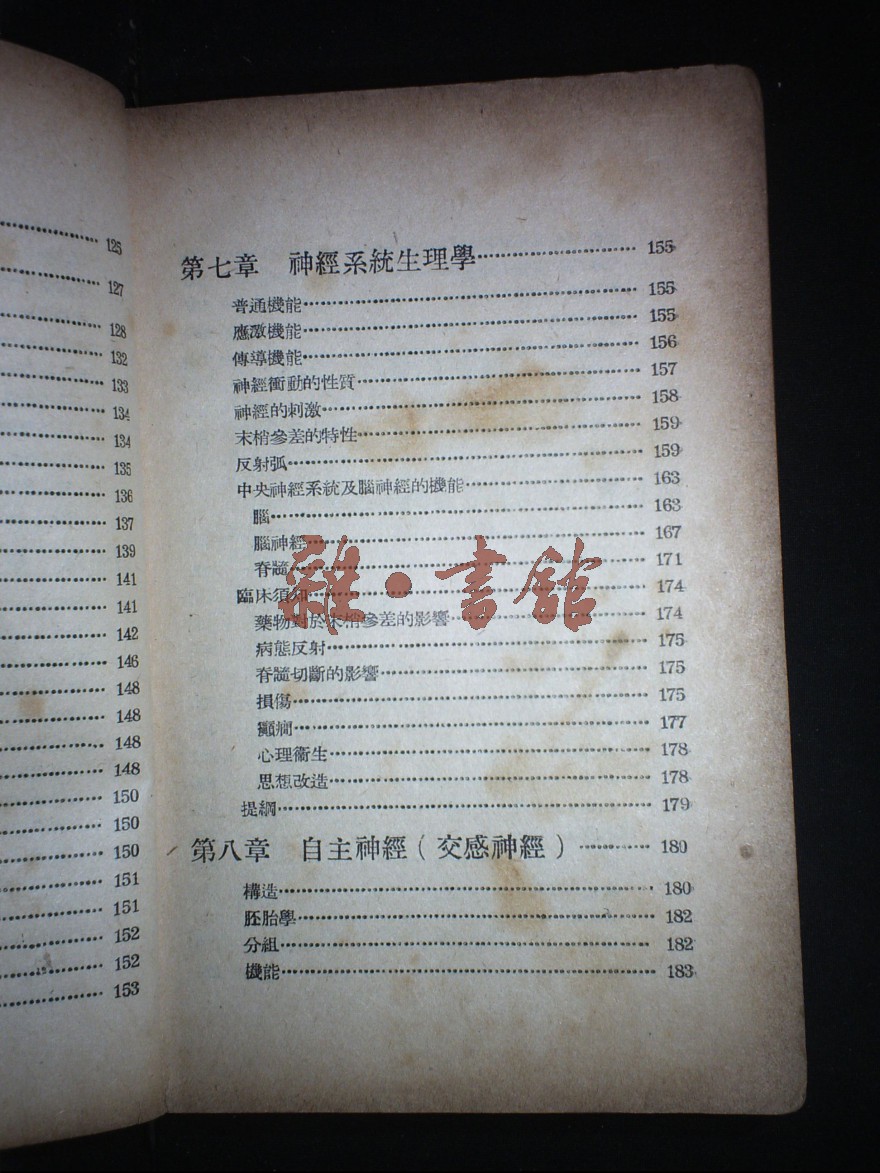 125
127
128
132
133
134
134
135
136
137
139
141
141
142
146
148
148
148
148
150
150
150
151
151
152
152
153
第七章 神經系統生理學 155
普通機能 155
應激機能 155
傳導機能 156
神經衝動的性質 157
神經的刺激 158
末梢參差的特性 159
反射弧 159
中央神經系統及腦神經的機能 163
腦 163
腦神經 167
脊髓 171
臨床須知 174
藥物對於末梢參差的影響 174
病態反射 175
脊髓切斷的影響 175
損傷 175
癲癇 177
心理衞生 178
思想改造 178
提綱 179
第八章 自主神經(交感神經) 180
構造 180
胚胎學 182
分組 182
機能 183
雜·書館